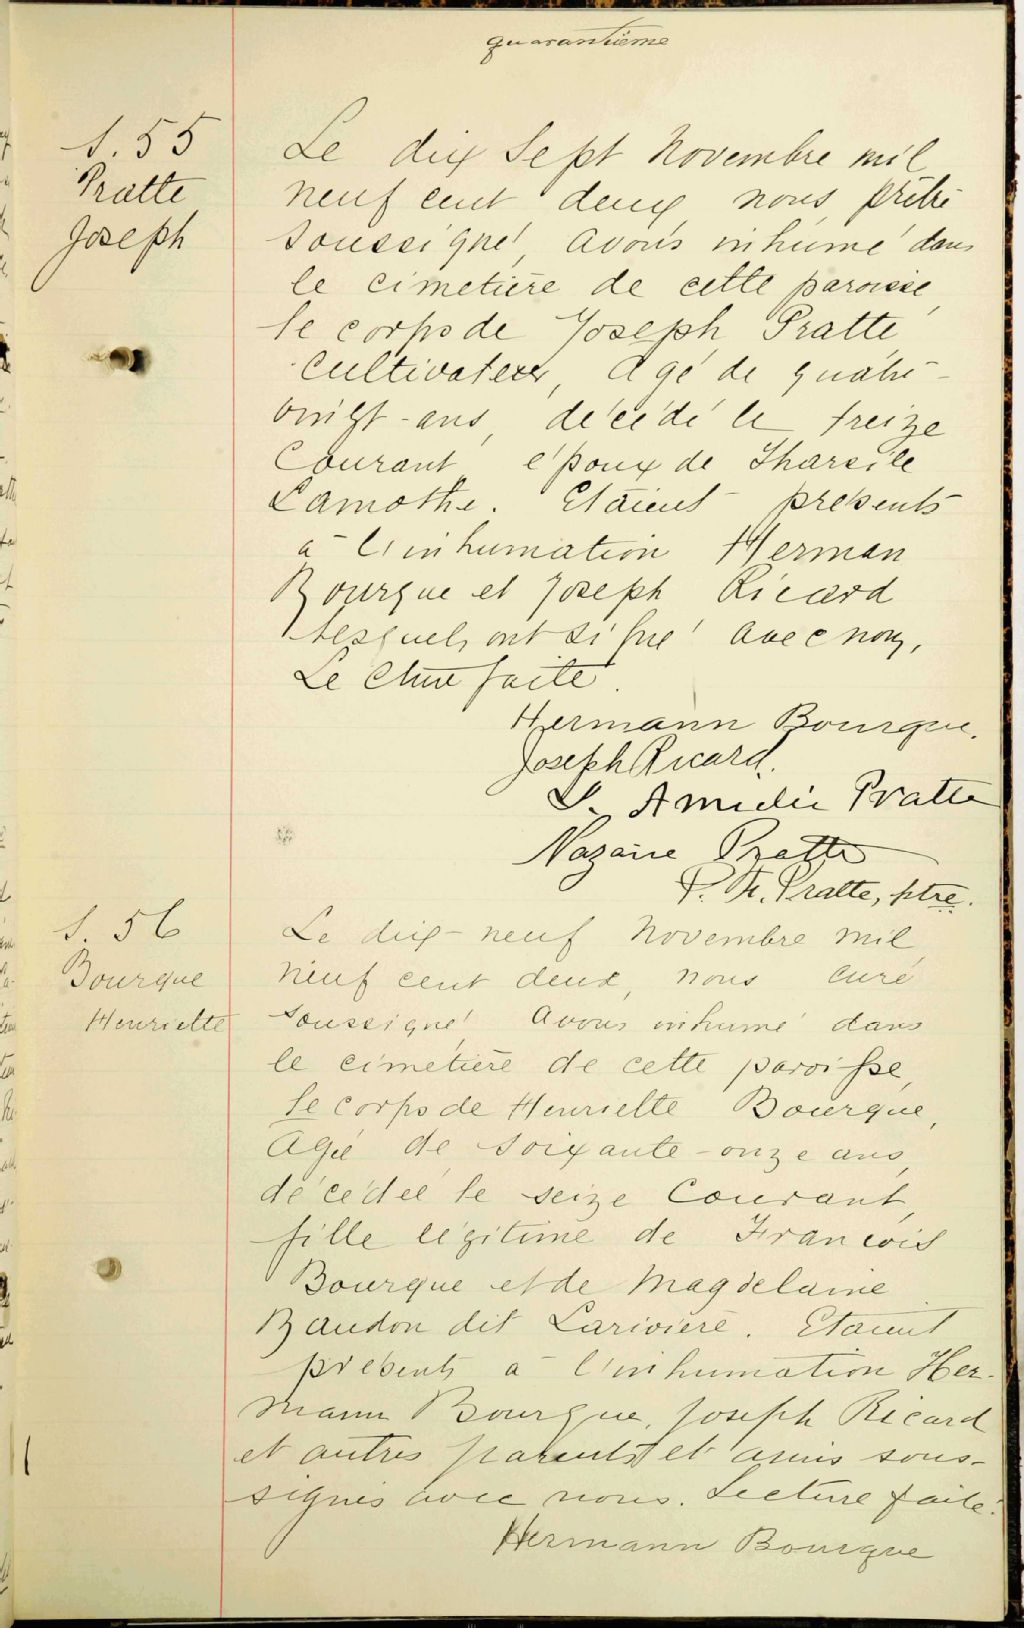 quarantième
S. 55
Pratte
Joseph
Le dix Sept Novembre mil
neuf cent deux, nous, prêtre
soussigné, avons inhumé dans
le cimetière de cette paroisse,
le corps de Joseph Pratte
cultivateur, agé de quatre-
vingt-ans, décédé le treize
Courant, époux de Tharsile
Lamothe. Etaient présents
à l'inhumation Herman
Bourque et Joseph Ricard
lesquels ont signé avec nous,
Lecture faite.
Hermann Bourque.
Joseph Ricard.
L. Amédée Pratte
Nazaire Pratte
P. H. Pratte, ptre.
S. 56
Bourque
Henriette
Le dix-neuf Novembre mil
neuf cent deux, nous curé
soussigné, avons inhumé dans
le cimetière de cette paroisse,
le corps de Henriette Bourque,
agée de soixante-onze ans,
décédée le seize Courant,
fille légitime de Francois
Bourque et de Magdelaine
Baudon dit Larivière. Etaient
présents à l'inhumation Her-
mann Bourque, Joseph Ricard
et autres parents et amis sous-
signés avec nous. Lecture faite.
Hermann Bourque